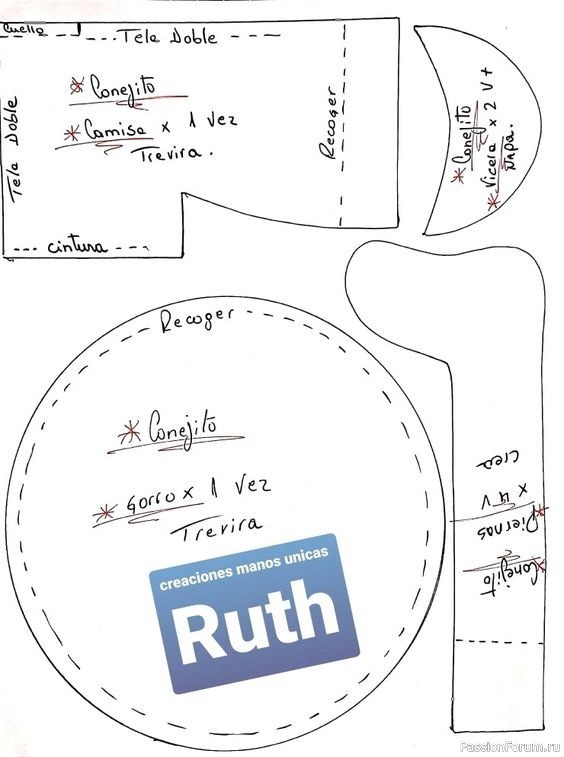 Cuello
--- Tela Doble ---
Tela Doble
* Conejito
* Camisa x 1 Vez
Trevira.
Recoger
--- cintura ---
* Conejito
* Vicera x 2 V +
Napa.
Recoger
* Conejito
* Gorro x 1 Vez
Trevira
creaciones manos unicas
Ruth
* Conejito
* Piernas
x 4 V
crea
PassionForum.ru